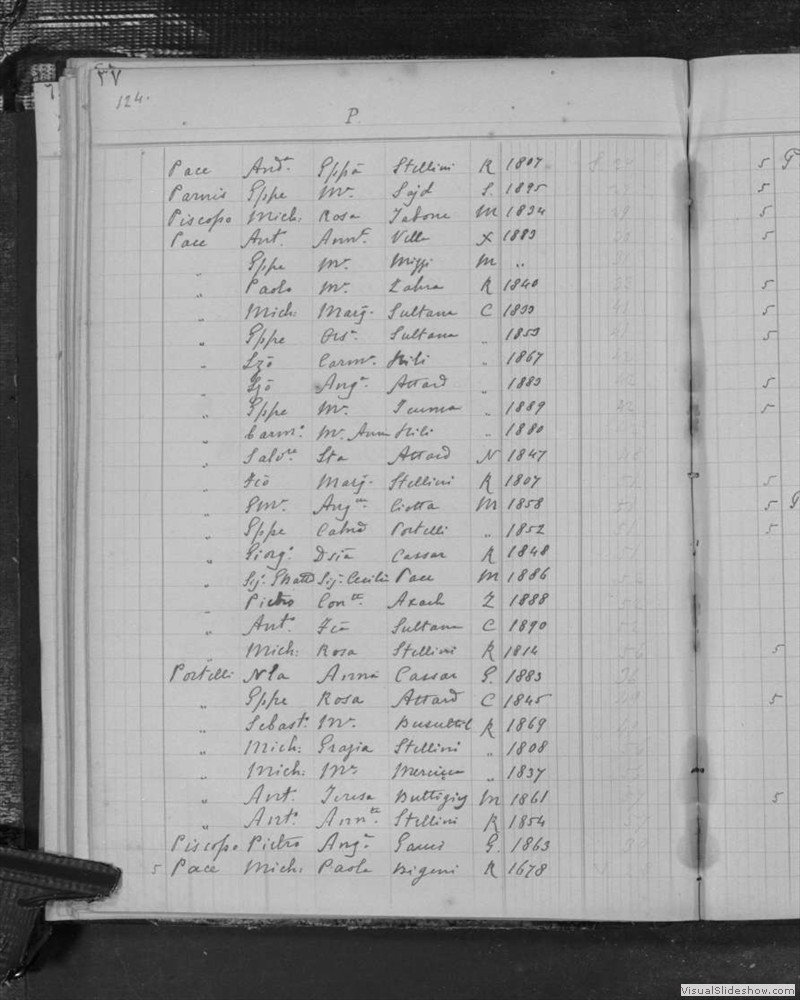 ٣٧
124.
P.
Pace And.ª Gppã Stellini R 1807
Parnis Gppe Mª. Sajd S. 1895
Piscopo Mich: Rosa Tabone M 1834
Pace Ant. Annª. Vella X 1883
„ Gppe Mª. Mizzi M „
„ Paolo Mª. Zahra R 1840
„ Mich: Marg̃. Sultana C 1833
„ Gppe Sultana „ 1853
„ Carmª. „ 1867
„ Angª. Attard „ 1883
„ Gppe Mª. „ 1889
„ Carmº. Mª. Ann „ 1880
„ Salvre Sta Attard N 1847
„ Fcõ Marg̃. Stellini R 1807
„ Emª. Angª. Ciotta M 1858
„ Gppe Portelli „ 1852
„ Giorgº. Cassar R 1848
„ Sij. Sij. Cecilia Pace M 1886
„ Pietro Axach Z 1888
„ Antº. Fcã Sultana C 1890
Mich: Rosa Stellini R 1814
Portelli Nla Anna Cassar G. 1883
„ Gppe Rosa Attard C 1845
„ Sebastº. Mª. Busuttil R 1869
„ Mich: Grazia Stellini „ 1808
„ Mich: Mª. Mercieca „ 1837
„ Ant. Teresa Buttigieg M 1861
„ Antº. Stellini R 1854
Piscopo Pietro Angª. Gauci G. 1863
5 Pace Mich: Paola Bigeni R 1678
VisualSlideshow.com